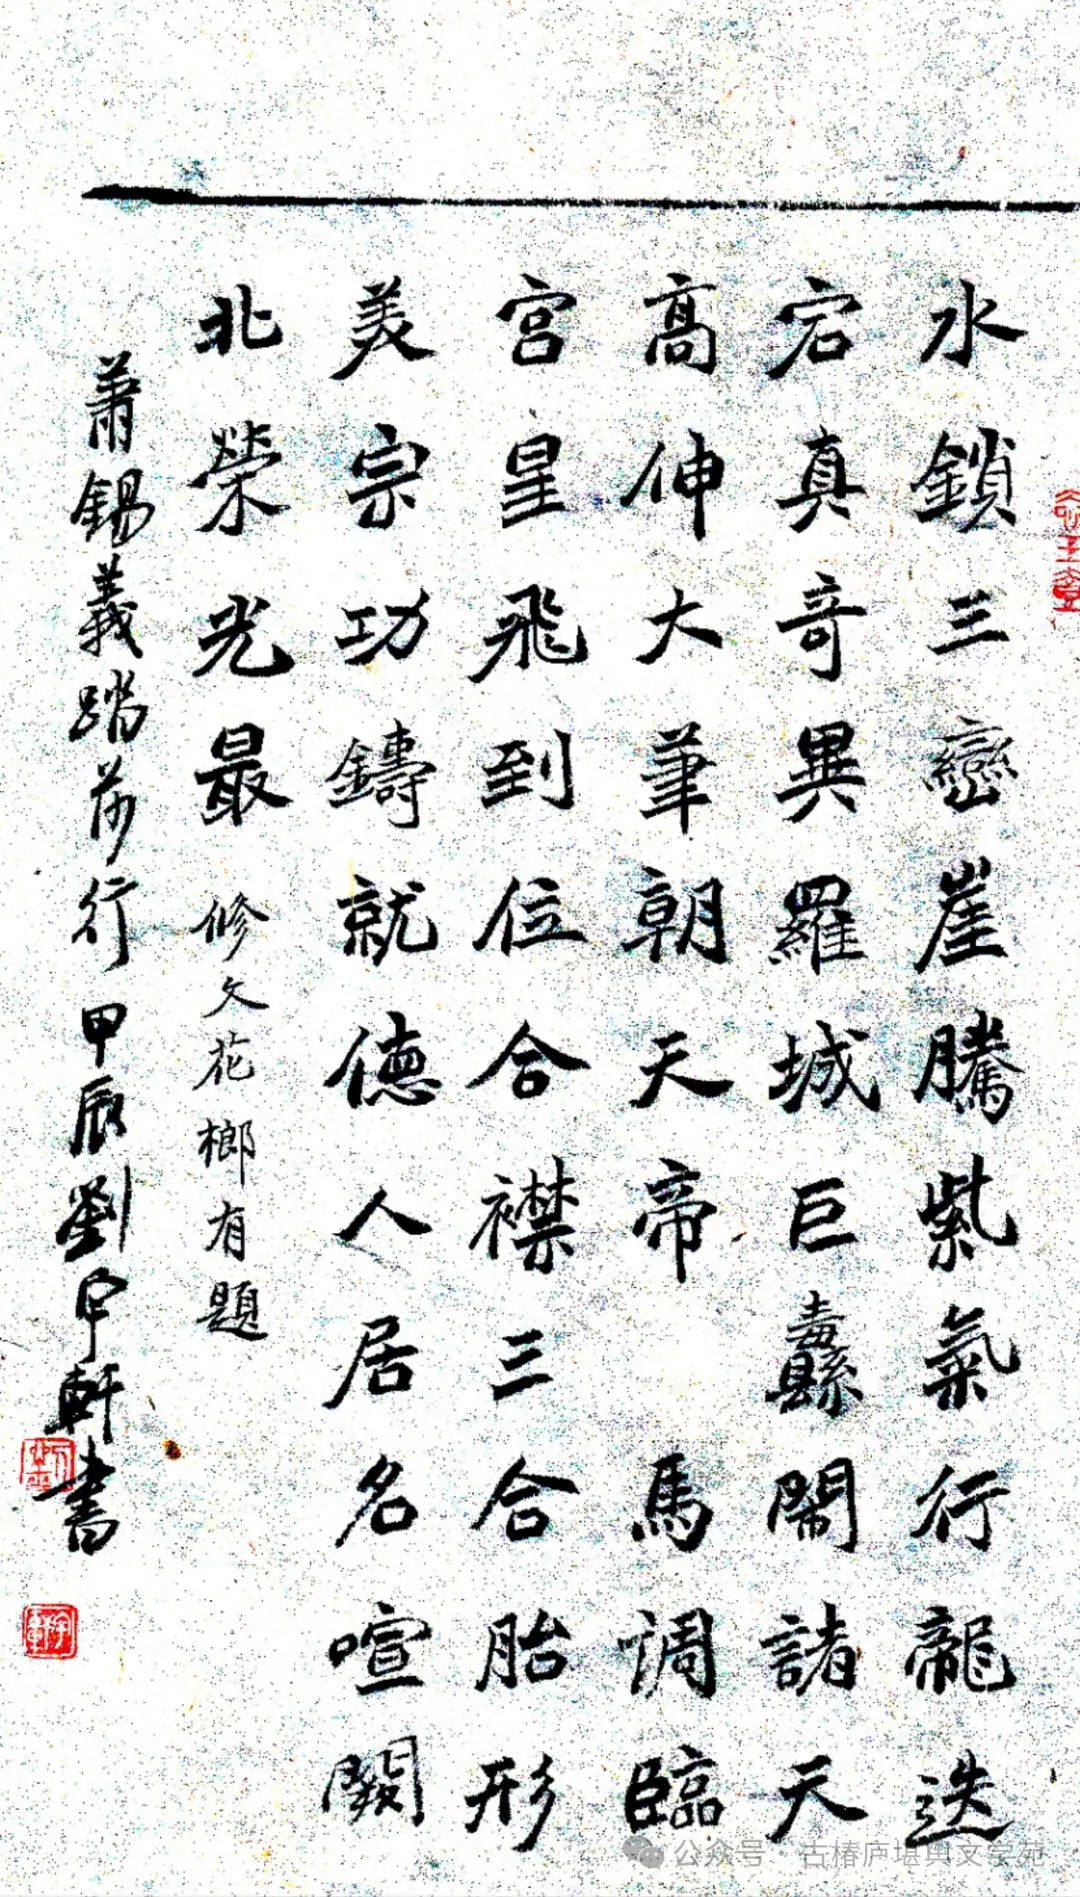 水鎖三巒崖騰紫氣行龍迭
宕真奇異羅城巨纛閙諸天
高伸大筆朝天帝 馬調臨
宮皇飛到位合襟三合胎形
美宗功鑄就德人居名喧闕
北榮光最 修文花榔有題
蕭錫義踏莎行甲辰劉甲軒書
公众号·古椿庐堪舆文学苑